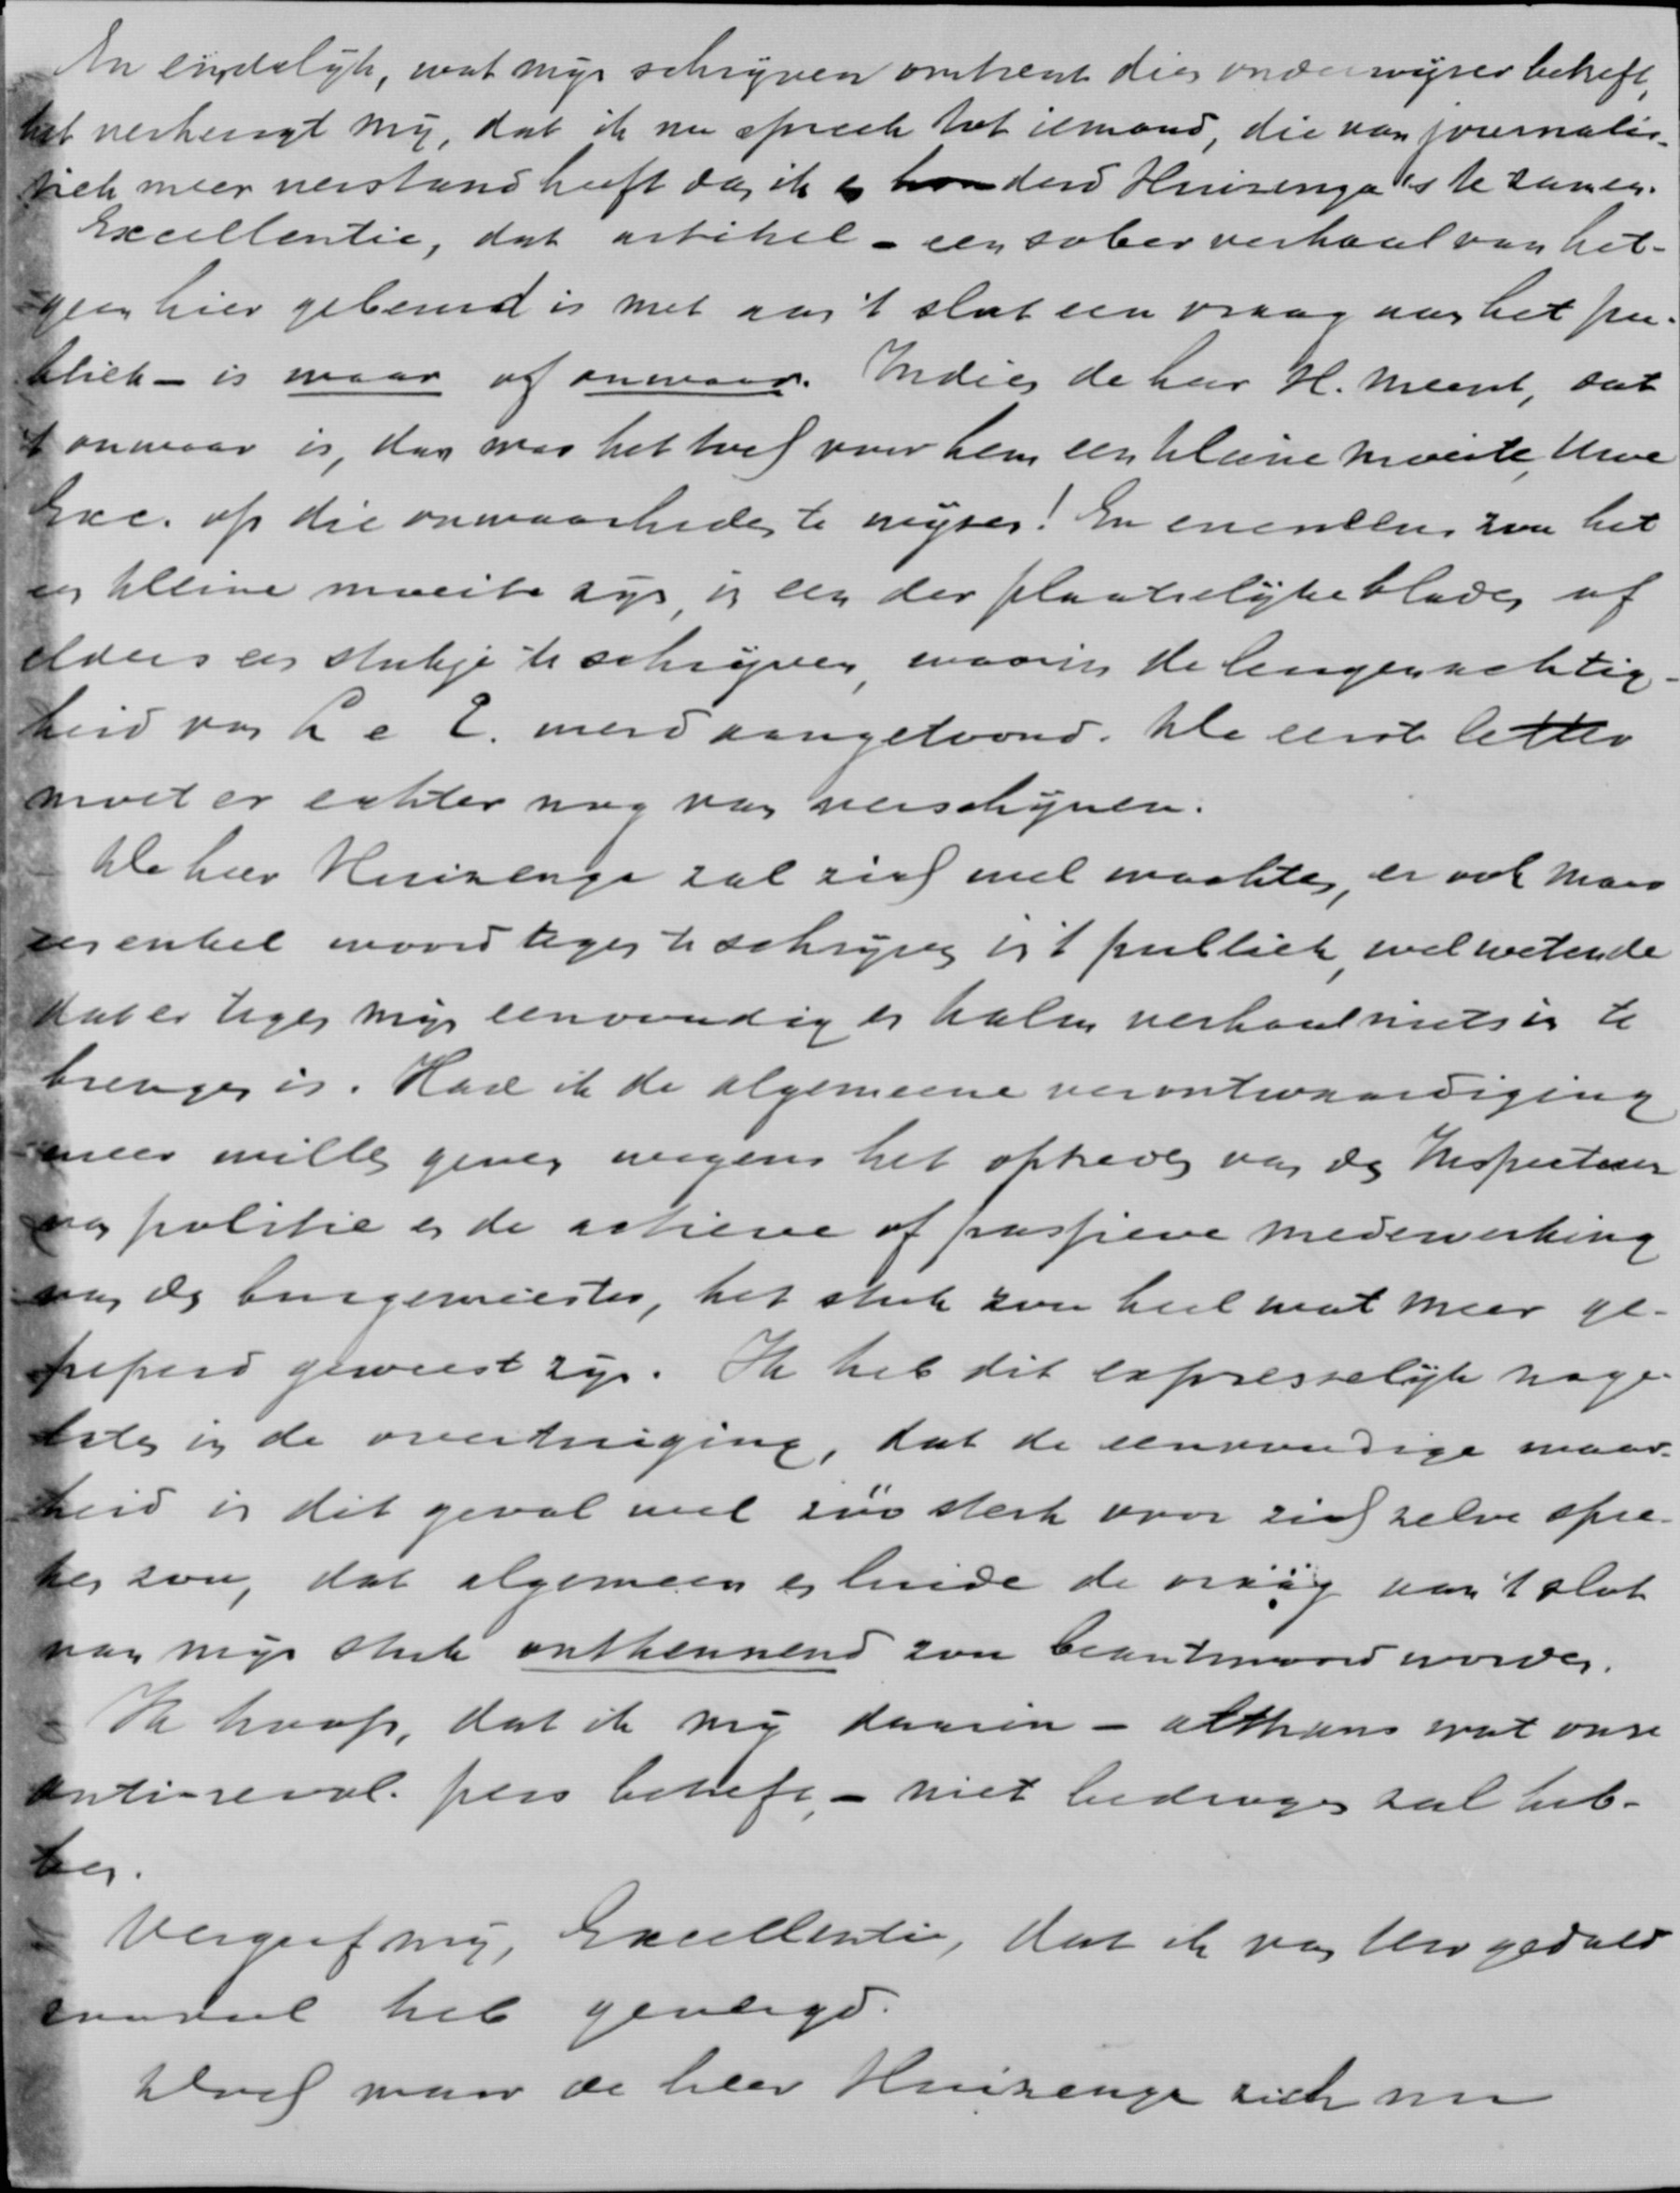 En eindelijk, wat mijn schrijven omtrent dien onderwijzer betreft,
het verheugt mij, dat ik nu spreek tot iemand, die van journalis-
tiek meer verstand heeft dan ik en honderd Huizenga's te zamen.
Excellentie, dat artikel - een sober verhaal van het-
geen hier gebeurd is met aan 't slot een vraag aan het pu-
bliek - is waar of onwaar. Indien de heer H. meent, dat
't onwaar is, dan was het toch voor hem een kleine moeite, Uwe
Exc. op die onwaarheden te wijzen! En eveneens zou het
een kleine moeite zijn, in een der plaatselijke bladen of
elders een stukje te schrijven, waarin de leugenachtig-
heid van werd aangetoond. De eerste letter
moet er echter nog van verschijnen.
De heer Huizenga zal zich wel wachten, er ook maar
een enkel woord tegen te schrijven in 't publiek, wel wetende
dat er tegen mijn eenvoudig en kalm verhaal niets in te
brengen is. Had ik de algemeene verontwaardiging
weer willen geven wegens het optreden van den Inspecteur
van politie en de actieve of passieve medewerking
van den burgemeester, het stuk zou heel wat meer ge-
peperd geweest zijn. Ik heb dit expresselijk nage-
laten in de overtuiging, dat de eenvoudige waar-
heid in dit geval wel zóó sterk voor zich zelve spre-
ken zou, dat algemeen en luide de vraag aan 't slot
van mijn stuk ontkennend zou beantwoord worden.
Ik hoop, dat ik mij daarin - althans wat onze
anti-revol. pers betreft, - niet bedrogen zal heb-
ben.
Vergeef mij, Excellentie, dat ik van Uw geduld
zooveel heb gevergd.
Doch waar de heer Huizenga zich nu